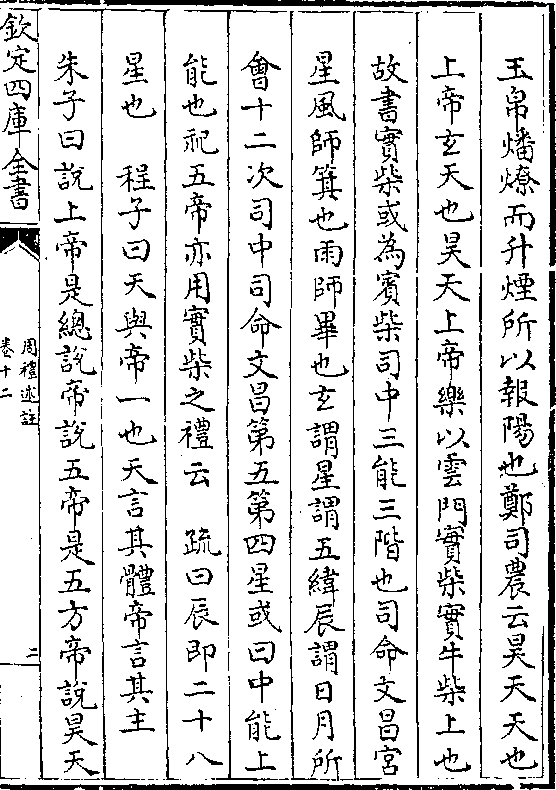 玉帛燔燎而升煙所以報陽也鄭司農云昊天天也
上帝玄天也昊天上帝樂以雲門實柴實牛柴上也
故書實柴或為賓柴司中三能三階也司命文昌宮
星風師箕也雨師畢也玄謂星謂五緯辰謂日月所
會十二次司中司命文昌第五第四星或曰中能上
能也祀五帝亦用實柴之禮云　疏曰辰即二十八
星也　程子曰天與帝一也天言其體帝言其主
朱子曰說上帝是總說帝說五帝是五方帝說昊天
欽定四庫全書
周禮述註
卷十二
二